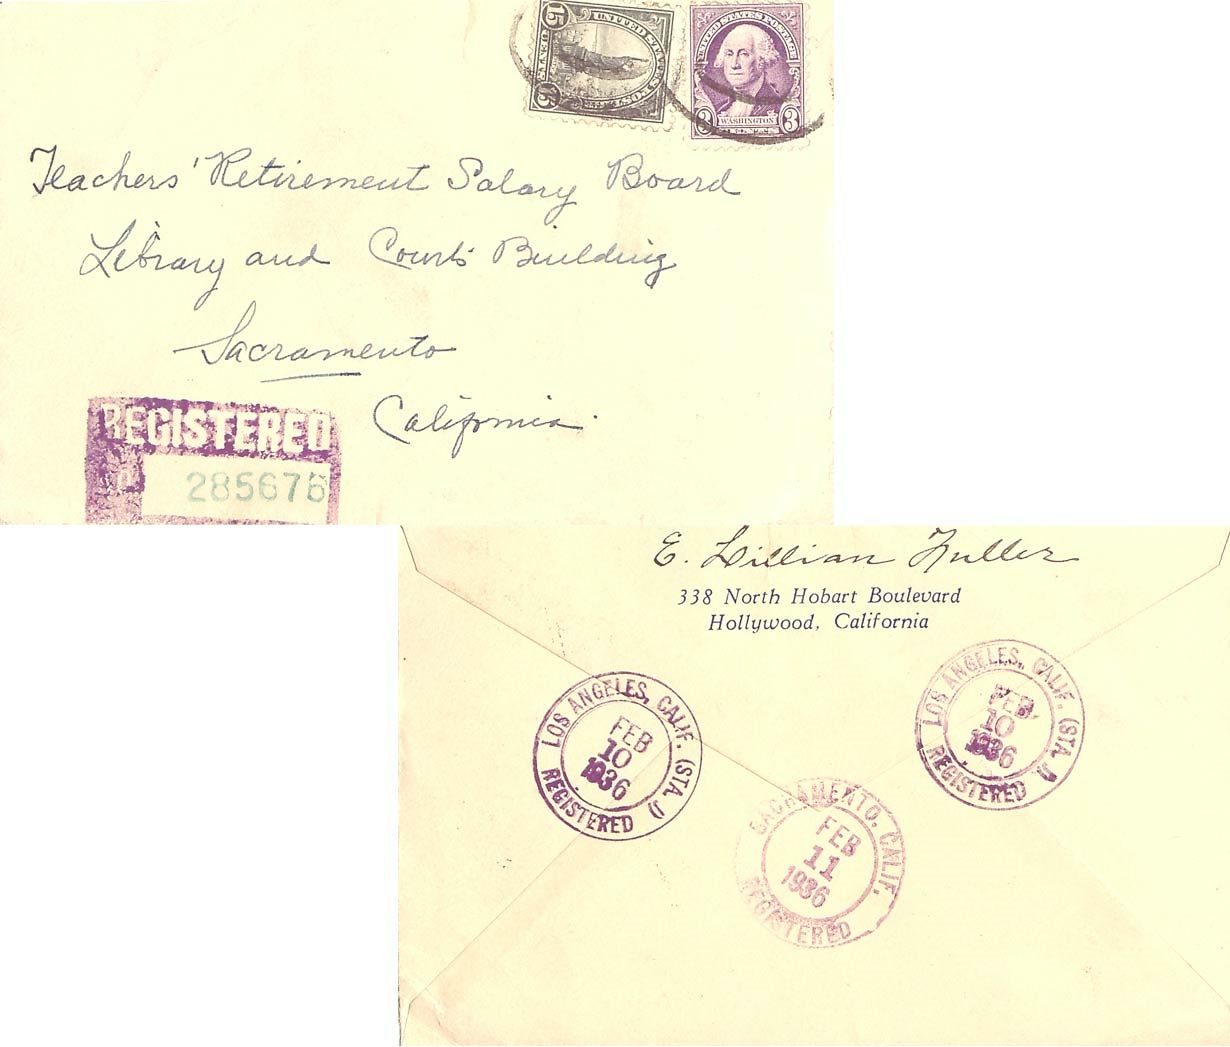 15 CENTS 15
UNITED STATES POSTAGE
UNITED STATES POSTAGE
WASHINGTON
3 CENTS 3
Teachers' Retirement Salary Board
Library and Courts Building
Sacramento
California.
REGISTERED
285676
E. Lillian Fuller
338 North Hobart Boulevard
Hollywood, California
LOS ANGELES, CALIF. (STA. J)
FEB
10
1936
REGISTERED
LOS ANGELES, CALIF. (STA. J)
FEB
10
1936
REGISTERED
SACRAMENTO, CALIF.
FEB
11
1936
REGISTERED